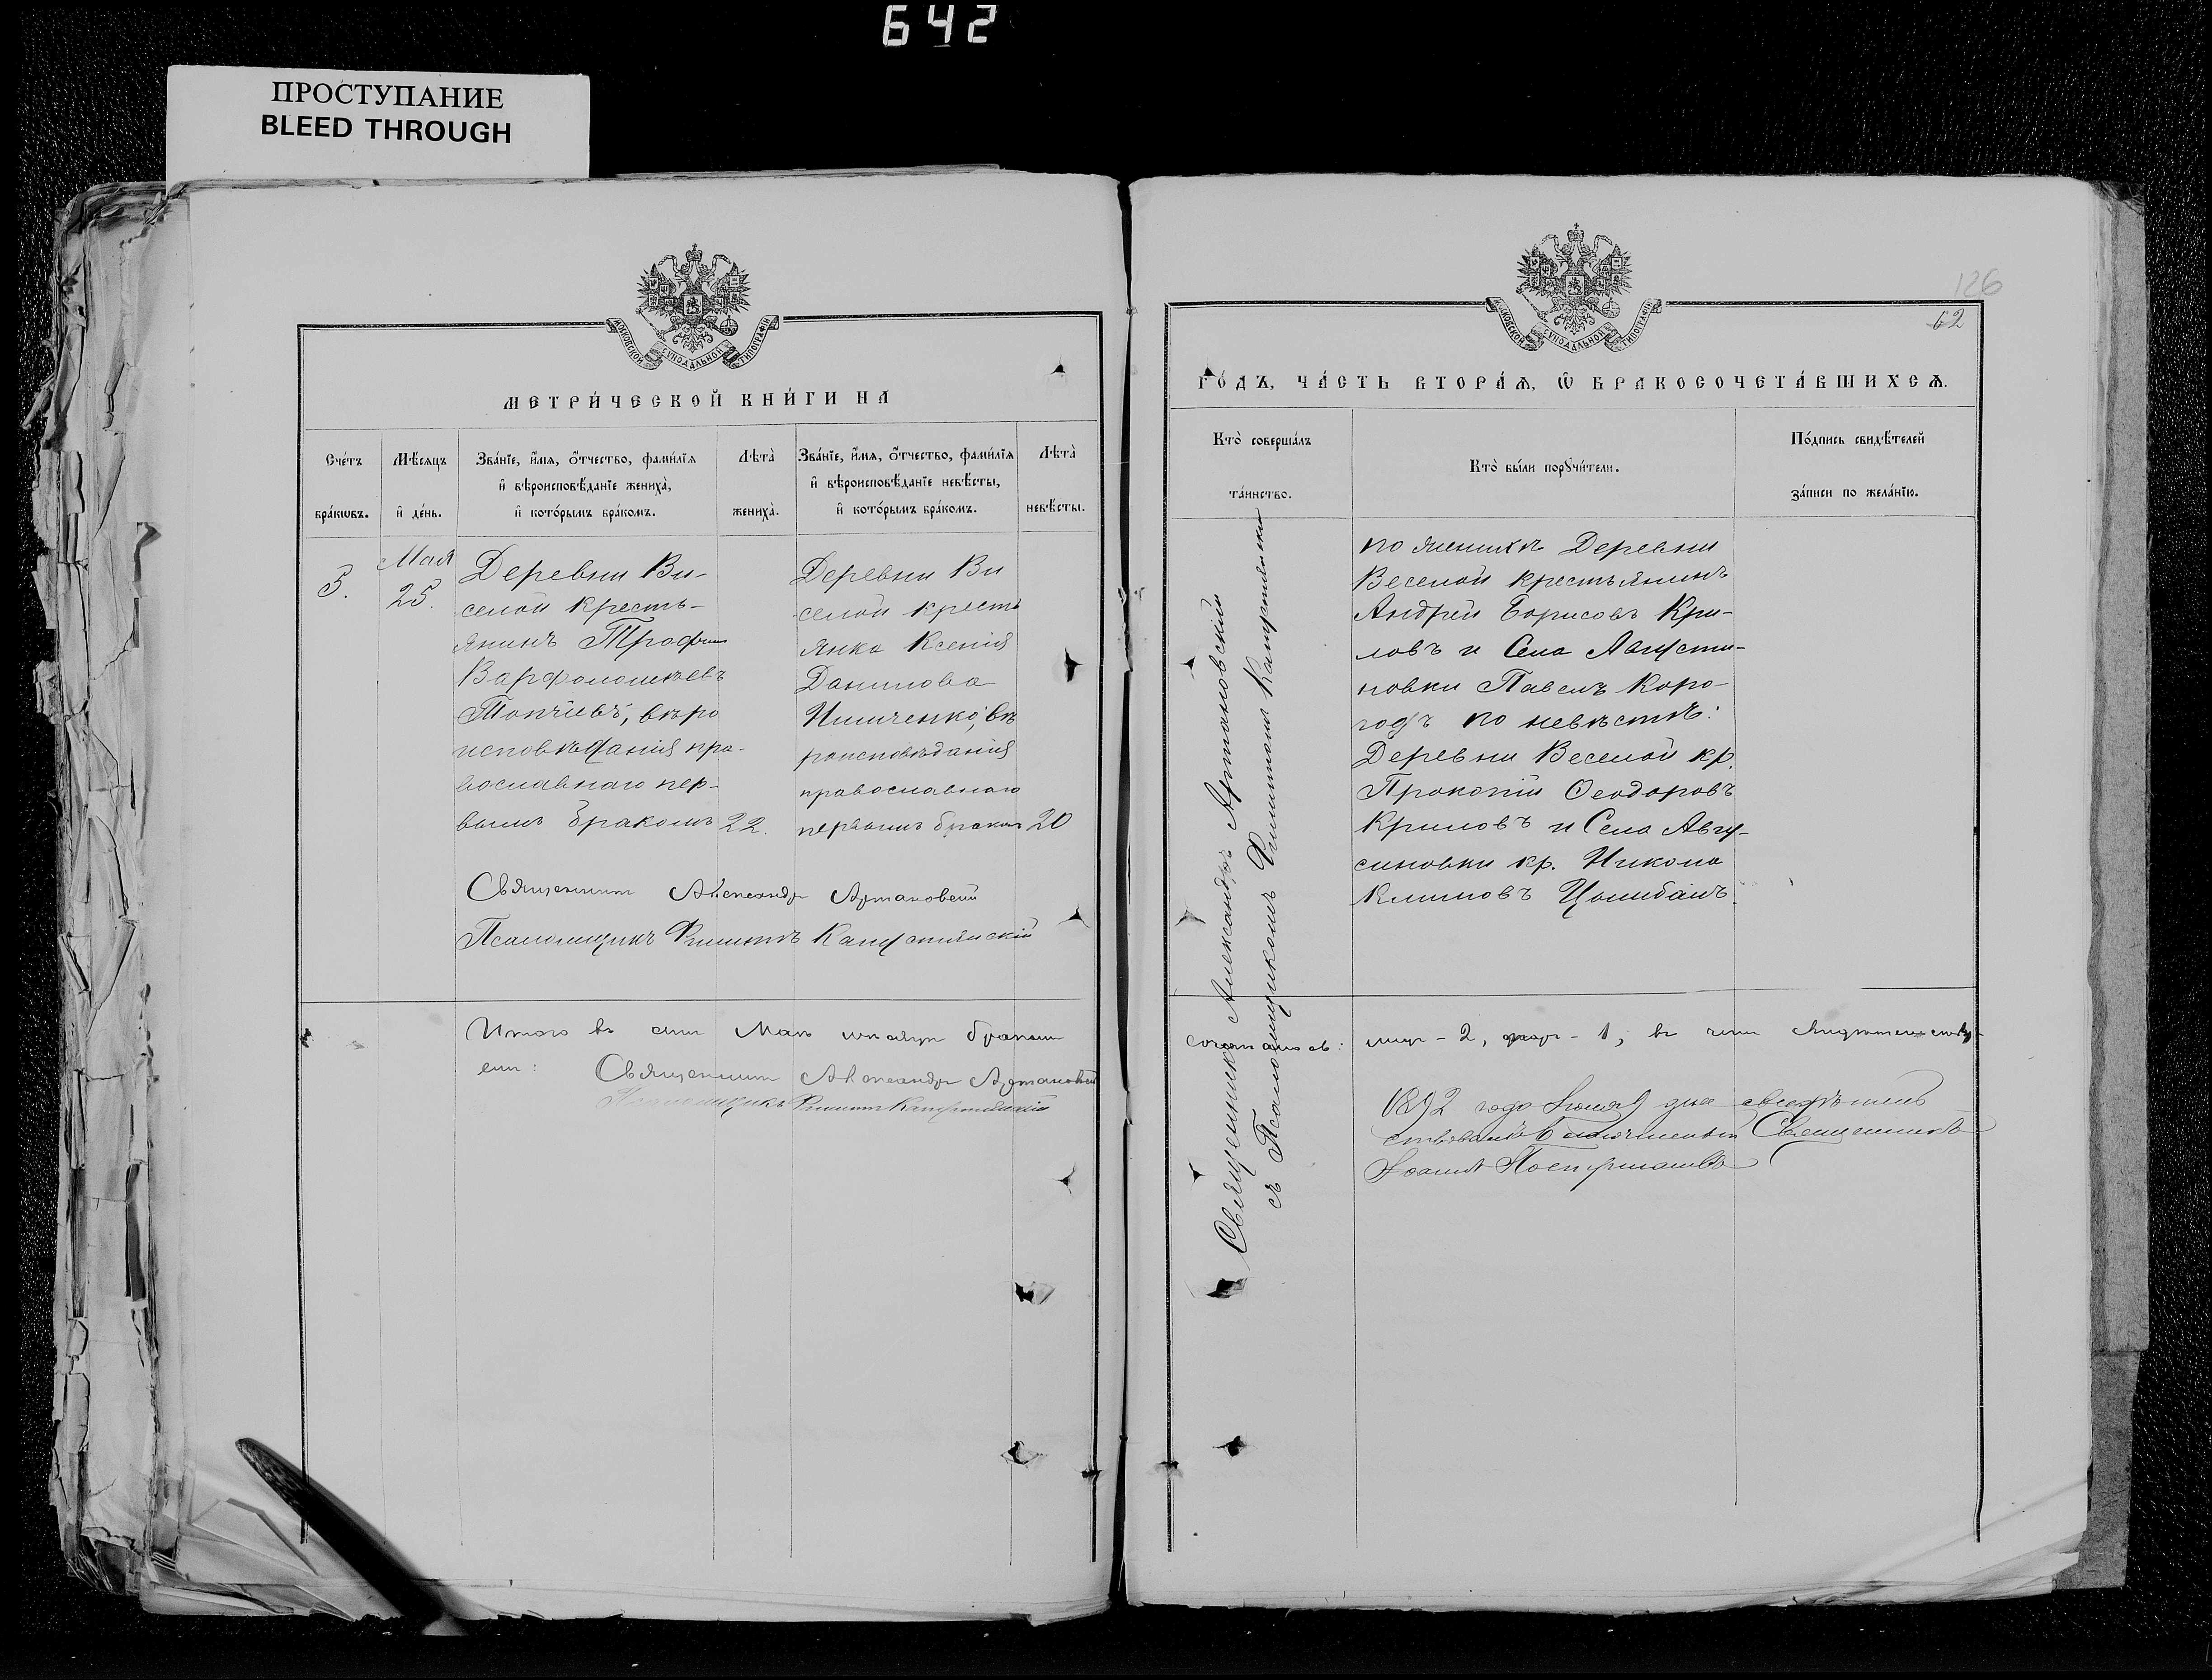 642
ПРОСТУПАНИЕ
BLEED THROUGH
МОСКОВСКОЙ СѴНОДАЛЬНОЙ ТИПОГРАФІИ
МЕТРИ́ЧЕСКОЙ КНИ́ГИ НА
Сче́тъ бра́кѡвъ.
Мѣ́сяцъ и҆ де́нь.
Зва́нїе, и҆́мѧ, ѻ҆́тчество, фами́лїѧ
и҆ вѣроисповѣ́данїе жениха̀,
и҆ кото́рымъ бра́комъ.
Лѣта̀ жениха̀.
Зва́нїе, и҆́мѧ, ѻ҆́тчество, фами́лїѧ
и҆ вѣроисповѣ́данїе невѣ́сты,
и҆ кото́рымъ бра́комъ.
Лѣта̀ невѣ́сты.
5.
Мая
25.
Деревни Ви-
селой кресть-
янинъ Трофим
Варфоломѣевъ
Топчіевъ, вѣро
исповѣданія пра-
вославнаго пер-
вымъ бракомъ 22.
Деревни Ви
селой кресть
янка Ксенія
Данилова
Ильченко, вѣ
роисповѣданія
православнаго
первымъ бракомъ 20
Священник Александр Артановскій
Псаломщикъ Филиппъ Капустянскій
Итого въ сем Маѣ мѣсяцѣ браком
Священник Александр Артановскій
Псаломщикъ Филиппъ Капустянскій
126
62
МОСКОВСКОЙ СѴНОДАЛЬНОЙ ТИПОГРАФІИ
ГО́ДЪ, ЧА́СТЬ ВТОРА́Ѧ, Ѡ҆ БРАКОСОЧЕТА́ВШИХСѦ.
Кто̀ соверша́лъ
та́инство.
Кто̀ бы́ли порꙋчи́тели.
По́дпись свидѣ́телей
за́писи по жела́нїю.
Священникъ Александръ Артановскій
съ Псаломщикомъ Филиппом Капустянским
по женихѣ Деревни
Веселой крестьянинъ
Андрей Борисовъ Кри-
ловъ и Села Августи-
новки Павелъ Коро-
годъ по невѣстѣ:
Деревни Веселой кр.
Прокопій Ѳеодоровъ
Криловъ и Села Авгу-
синовки кр. Никола
Климовъ Цымбалъ.
сочеталось: муж - 2, 1, въ чем свидѣтельству-
1892 года дня
Священникъ
Іоаннъ